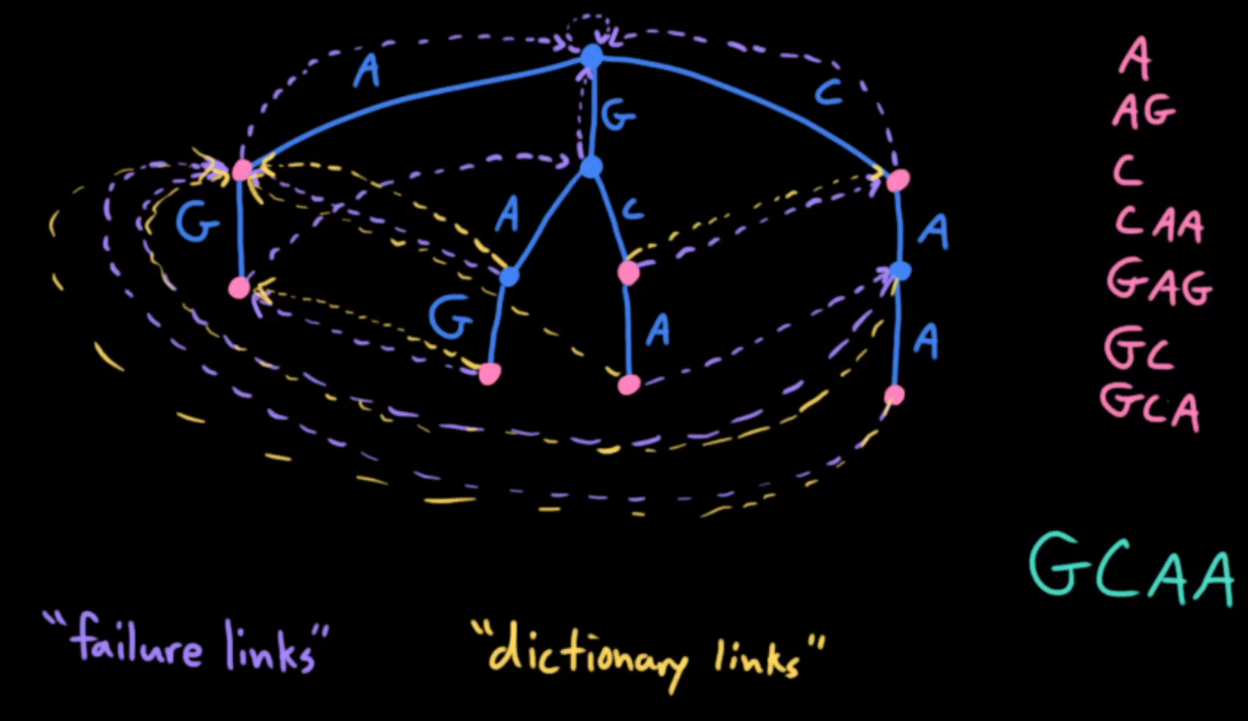 A
C
G
G
A
C
A
G
A
A
A
AG
C
CAA
GAG
GC
GCA
GCAA
"failure links"
"dictionary links"